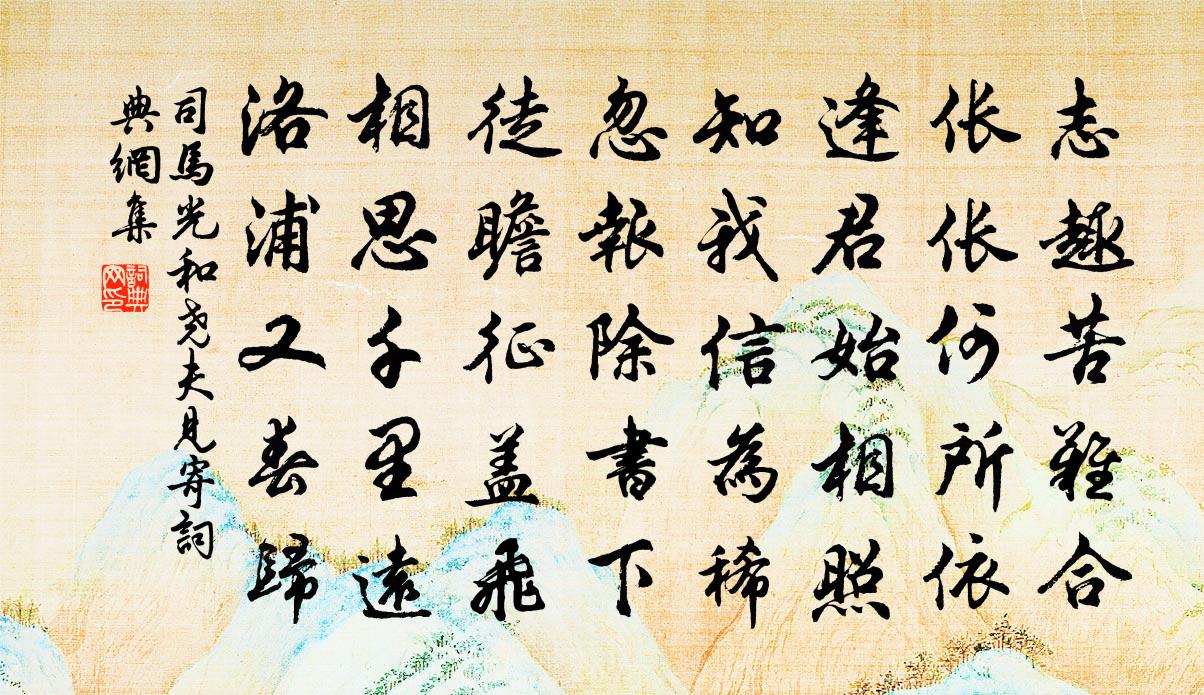 志趣苦難合
伥伥何所依
逢君始相照
知我信為稀
忽報除書下
徒瞻征盖飛
相思千里遠
洛浦又春歸
司馬光和尧夫見寄詞
典網集
詞典
网印